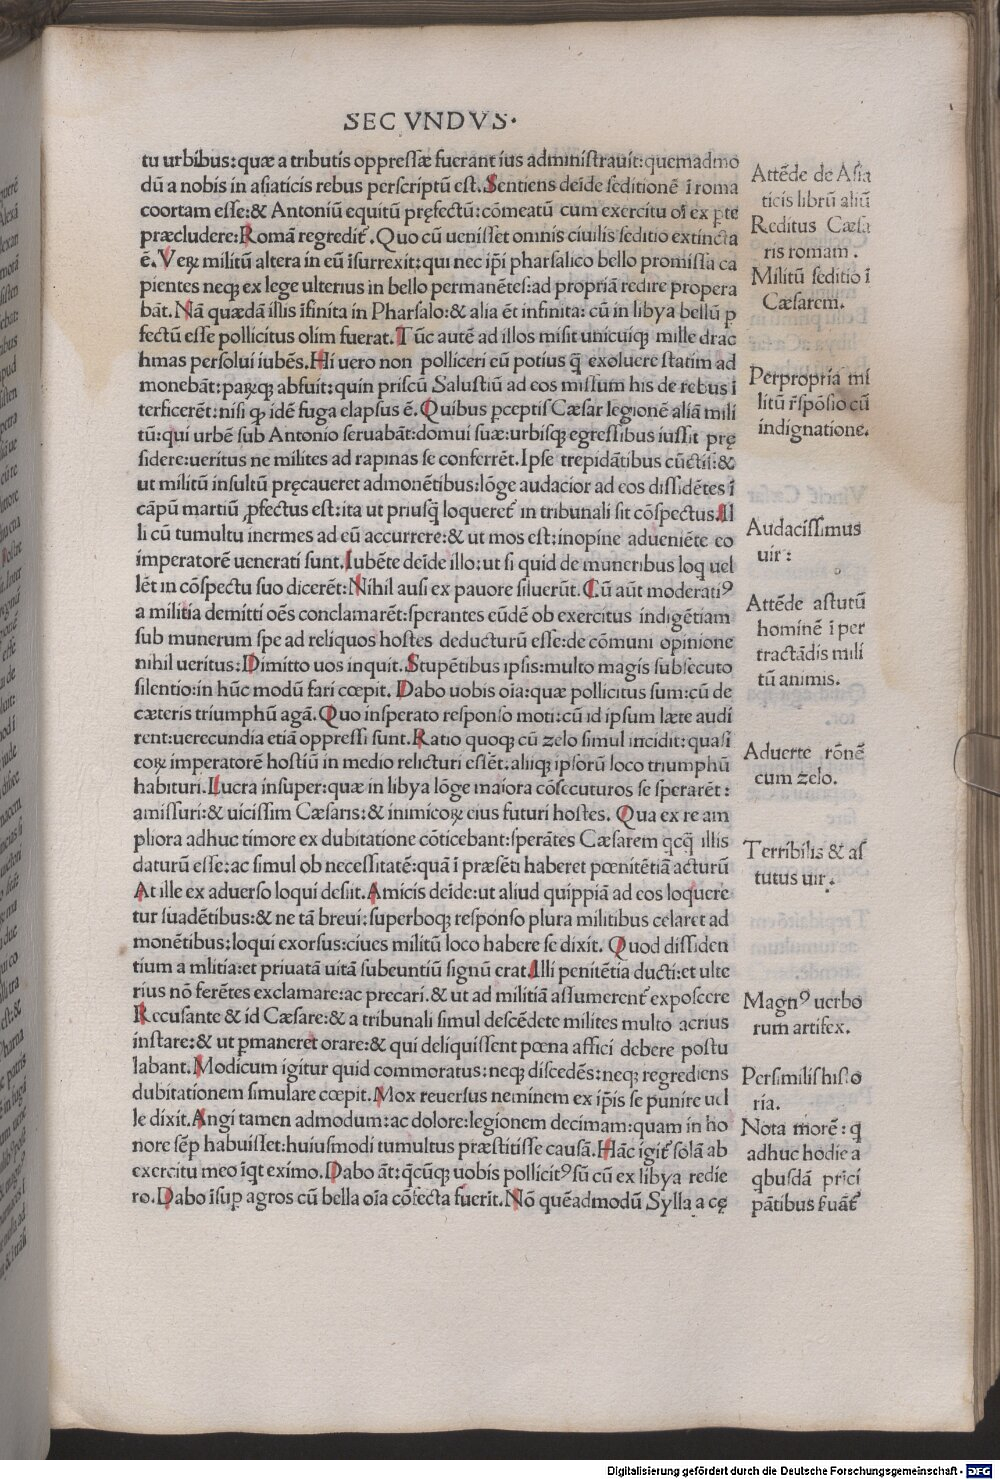 SECVNDVS.
tu urbibus: quæ a tributis oppressæ fuerant ius administrauit: quemadmo
dū a nobis in asiaticis rebus perscriptū est. Sentiens deīde seditionē ī roma
coortam esse: & Antoniū equitū pręfectū: cōmeatū cum exercitu oī ex pte
præcludere: Romā regredit᷑. Quo cū uenisset omnis ciuilis seditio extincta
ē. Veꝝ militū altera in eū īsurrexit: qui nec ip̄i pharsalico bello promissa ca
pientes neqꝫ ex lege ulterius in bello permanētes: ad propriā redire propera
bāt. Nā quædā illis īfinita in Pharsalo: & alia ēt infinita: cū in libya bellū ꝑ
fectū esse pollicitus olim fuerat. Tūc autē ad illos misit unicuiqꝫ mille drac
hmas persolui iubēs. Hi uero non polliceri eū potius q̄ exoluere statim ad
monebāt: paꝝqꝫ abfuit: quin priscū Salustiū ad eos missum his de rebus ī
terficerēt: nisi qꝫ idē fuga elapsus ē. Quibus ꝑceptis Cæsar legionē aliā mili
tū: qui urbē sub Antonio seruabāt: domui suæ: urbisqꝫ egressibus iussit prę
sidere: ueritus ne milites ad rapinas se conferrēt. Ipse trepidātibus cūctis: &
ut militū insultū pręcaueret admonētibus: lōge audacior ad eos dissidētes ī
cāpū martiū ꝓfectus est: ita ut priusq̄ loqueret᷑ in tribunali sit cōspectus. Il
li cū tumultu inermes ad eū accurrere: & ut mos est: inopine adueniēte eo
imperatorē uenerati sunt. Iubēte deīde illo: ut si quid de muneribus loq̄ uel
lēt in cōspectu suo dicerēt: Nihil ausi ex pauore siluerūt. Cū aūt moderatiꝰ
a militia demitti oēs conclamarēt: sperantes eūdē ob exercitus indigētiam
sub munerum spe ad reliquos hostes deducturū esse: de cōmuni opinione
nihil ueritus: Dimitto uos inquit. Stupētibus ipsis: multo magis subsecuto
silentio: in hūc modū fari cœpit. Dabo uobis oīa: quæ pollicitus sum: cū de
cæteris triumphū agā. Quo insperato responso moti: cū id ipsum læte audi
rent: uerecundia etiā oppressi sunt. Ratio quoqꝫ cū zelo simul incidit: quasi
coꝝ imperatorē hostiū in medio relicturi essēt: aliiqꝫ ipsorū loco triumphū
habituri. Lucra insuper: quæ in libya lōge maiora cōsecuturos se sperarēt:
amissuri: & uicissim Cæsaris: & inimicoꝝ eius futuri hostes. Qua ex re am
pliora adhuc timore ex dubitatione cōticebant: sperātes Cæsarem qcq̄ illis
daturū esse: ac simul ob necessitatē: quā ī præsēti haberet pœnitētiā acturū
At ille ex aduerso loqui desiit. Amicis deīde: ut aliud quippiā ad eos loquere
tur suadētibus: & ne tā breui: superboqꝫ responso plura militibus celaret ad
monētibus: loqui exorsus: ciues militū loco habere se dixit. Quod dissiden
tium a mlitia: et priuatā uitā subeuntiū signū erat. Illi penitētia ducti: et ulte
rius nō ferētes exclamare: ac precari. & ut ad militiā assumerent᷑ exposcere
Recusante & id Cæsare: & a tribunali simul descēdēte milites multo acrius
instare: & ut ꝑmaneret orare: & qui deliquissent pœna affici debere postu
labant. Modicum igitur quid commoratus: neqꝫ discedēs: neqꝫ regrediens
dubitationem simulare cœpit. Mox reuersus neminem ex ip̄is se punire uel
le dixit. Angi tamen admodum: ac dolore: legionem decimam: quam in ho
nore sēp habuisset: huiusmodi tumultus præstitisse causā. Hāc igit᷑ solā ab
exercitu meo īqt eximo. Dabo āt: q̄cūqꝫ uobis pollicitꝰ sū cū ex libya redie
ro. Dabo īsup agros cū bella oīa cōfecta fuerit. Nō quēadmodū Sylla a cę
Attēde de Asia
ticis librū aliū
Reditus Cæsa
ris romam.
Militū seditio ī
Cæsarem.
Perpropria mi
litū r̄spōsio cū
indignatione.
Audacissimus
uir:
Attēde astutū
hominē ī per
tractādis mili
tū animis.
Aduerte rōnē
cum zelo.
Terribilis & as
tutus uir.
Magnꝰ uerbo
rum artifex.
Persimilis histo
ria.
Nota morē: q̄
adhuc hodie a
qbusdā prīci
pātibus ẜuāt᷑
Digitalisierung gefördert durch die Deutsche Forschungsgemeinschaft - DFG